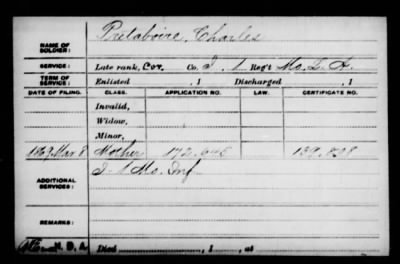 Prilaboire, Charles
NAME OF SOLDIER:
SERVICE: Late rank, Cor. Co. I, 1 Reg't Mo. L. A.
TERM OF SERVICE: Enlisted , 1 Discharged , 1
DATE OF FILING. CLASS. APPLICATION NO. LAW. CERTIFICATE NO.
Invalid,
Widow,
Minor,
1869 Mar 8 Mother 172.645 139.838
ADDITIONAL SERVICES: I 1 Mo. Inf
REMARKS:
Died , 1 , at